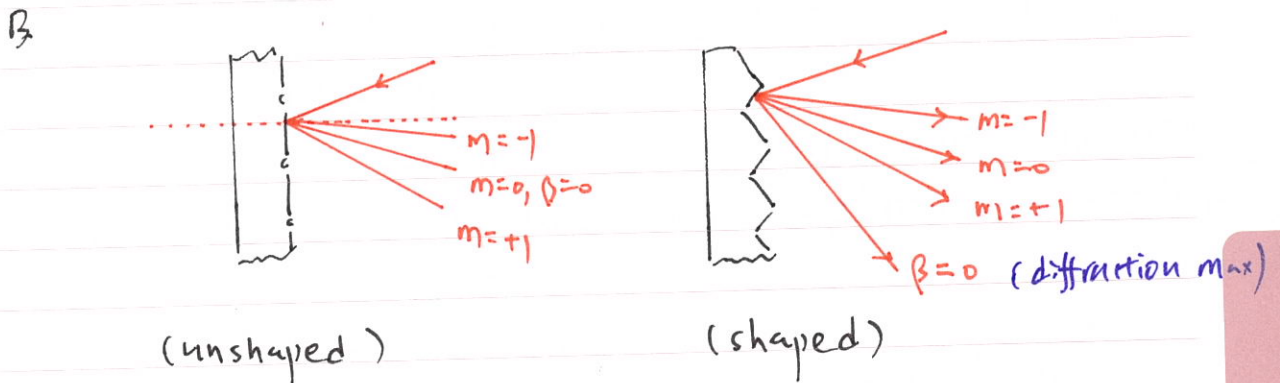 B
m=-1
m=0, β=0
m=+1
(unshaped)
m=-1
m=0
m=+1
β=0 (diffraction max)
(shaped)